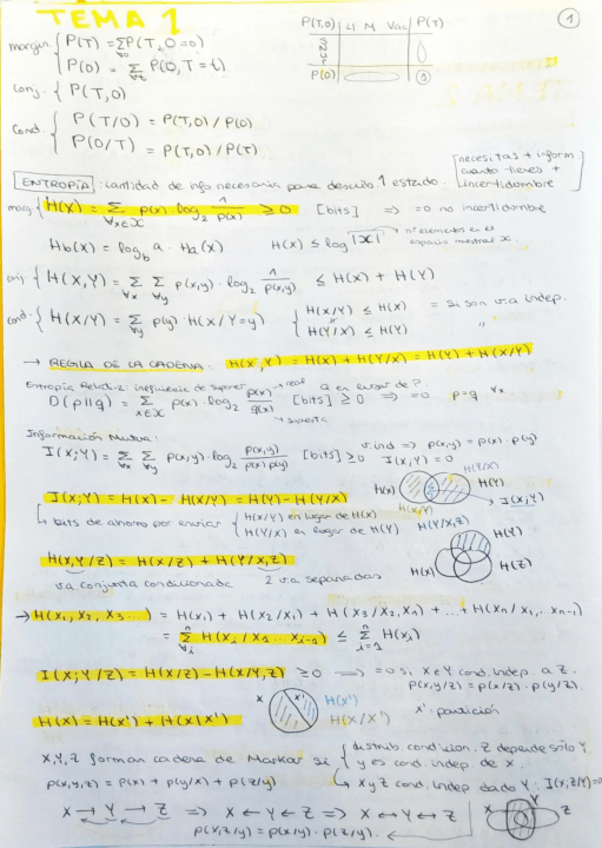 TEMA 1
1
margin. { P(T) = ∑∀o P(T, O=o)
P(O) = ∑∀t P(O, T=t)
P(T,O) | LL M Vac | P(T)
P(O) 1
conj. { P(T,O)
Cond. { P(T/O) = P(T,O) / P(O)
P(O/T) = P(T,O) / P(T)
[necesitas + inform
cuanto tienes +
incertidumbre]
ENTROPÍA : cantidad de info necesaria para describ. 1 estado.
marg { H(X) = ∑∀x∈X p(x) · log2 1/p(x) ≥ 0 [bits] => =0 no incertidumbre
Hb(X) = logb a · Ha(X) H(X) ≤ log |X| → nº elementos en el
espacio muestral X.
conj { H(X,Y) = ∑∀x ∑∀y p(x,y) · log2 1/p(x,y) ≤ H(X) + H(Y)
cond. { H(X/Y) = ∑∀y p(y) · H(X/Y=y) { H(X/Y) ≤ H(X) = si son v.a indep.
H(Y/X) ≤ H(Y) "
→ REGLA DE LA CADENA: H(X,Y) = H(X) + H(Y/X) = H(Y) + H(X/Y)
Entropía Relativa: ineficiencia de suponer q en lugar de p.
D(p||q) = ∑x∈X p(x) · log2 p(x)/q(x) [bits] ≥ 0 => =0 p=q ∀x
→ real
→ supuesta
Información Mutua:
I(X;Y) = ∑∀x ∑∀y p(x,y) · log2 p(x,y)/p(x)p(y) [bits] ≥0 v.ind => p(x,y) = p(x) · p(y)
I(X,Y) = 0
I(X;Y) = H(X) - H(X/Y) = H(Y) - H(Y/X)
H(X) H(Y/X) H(Y) H(X/Y) I(X,Y)
↳ bits de ahorro por enviar { H(X/Y) en lugar de H(X)
H(Y/X) en lugar de H(Y)
H(Y/X,Z) H(Y) H(X) H(Z)
H(X,Y/Z) = H(X/Z) + H(Y/X,Z)
va conjunta condicionada 2 v.a separadas
→ H(X1, X2, X3...) = H(X1) + H(X2/X1) + H(X3/X2,X1) + ... + H(Xn/X1,...Xn-1)
= ∑∀i H(Xi/X1...Xi-1) ≤ ∑i=1 n H(Xi)
I(X;Y/Z) = H(X/Z) - H(X/Y,Z) ≥0 => =0 si X e Y cond. indep. a Z.
p(x,y/z) = p(x/z) · p(y/z)
H(X) = H(X') + H(X/X')
X X' H(X')
H(X/X')
X': partición
X,Y,Z forman cadena de Markov si { distrib. condicion. Z depende sólo Y
y es cond. indep. de X.
p(x,y,z) = p(x) + p(y/x) + p(z/y) ↳ X y Z cond. indep dado Y: I(X;Z/Y)=0
X → Y → Z => X ← Y ← Z => X ↔ Y ↔ Z
p(x,z/y) = p(x/y) · p(z/y).
X Y Z